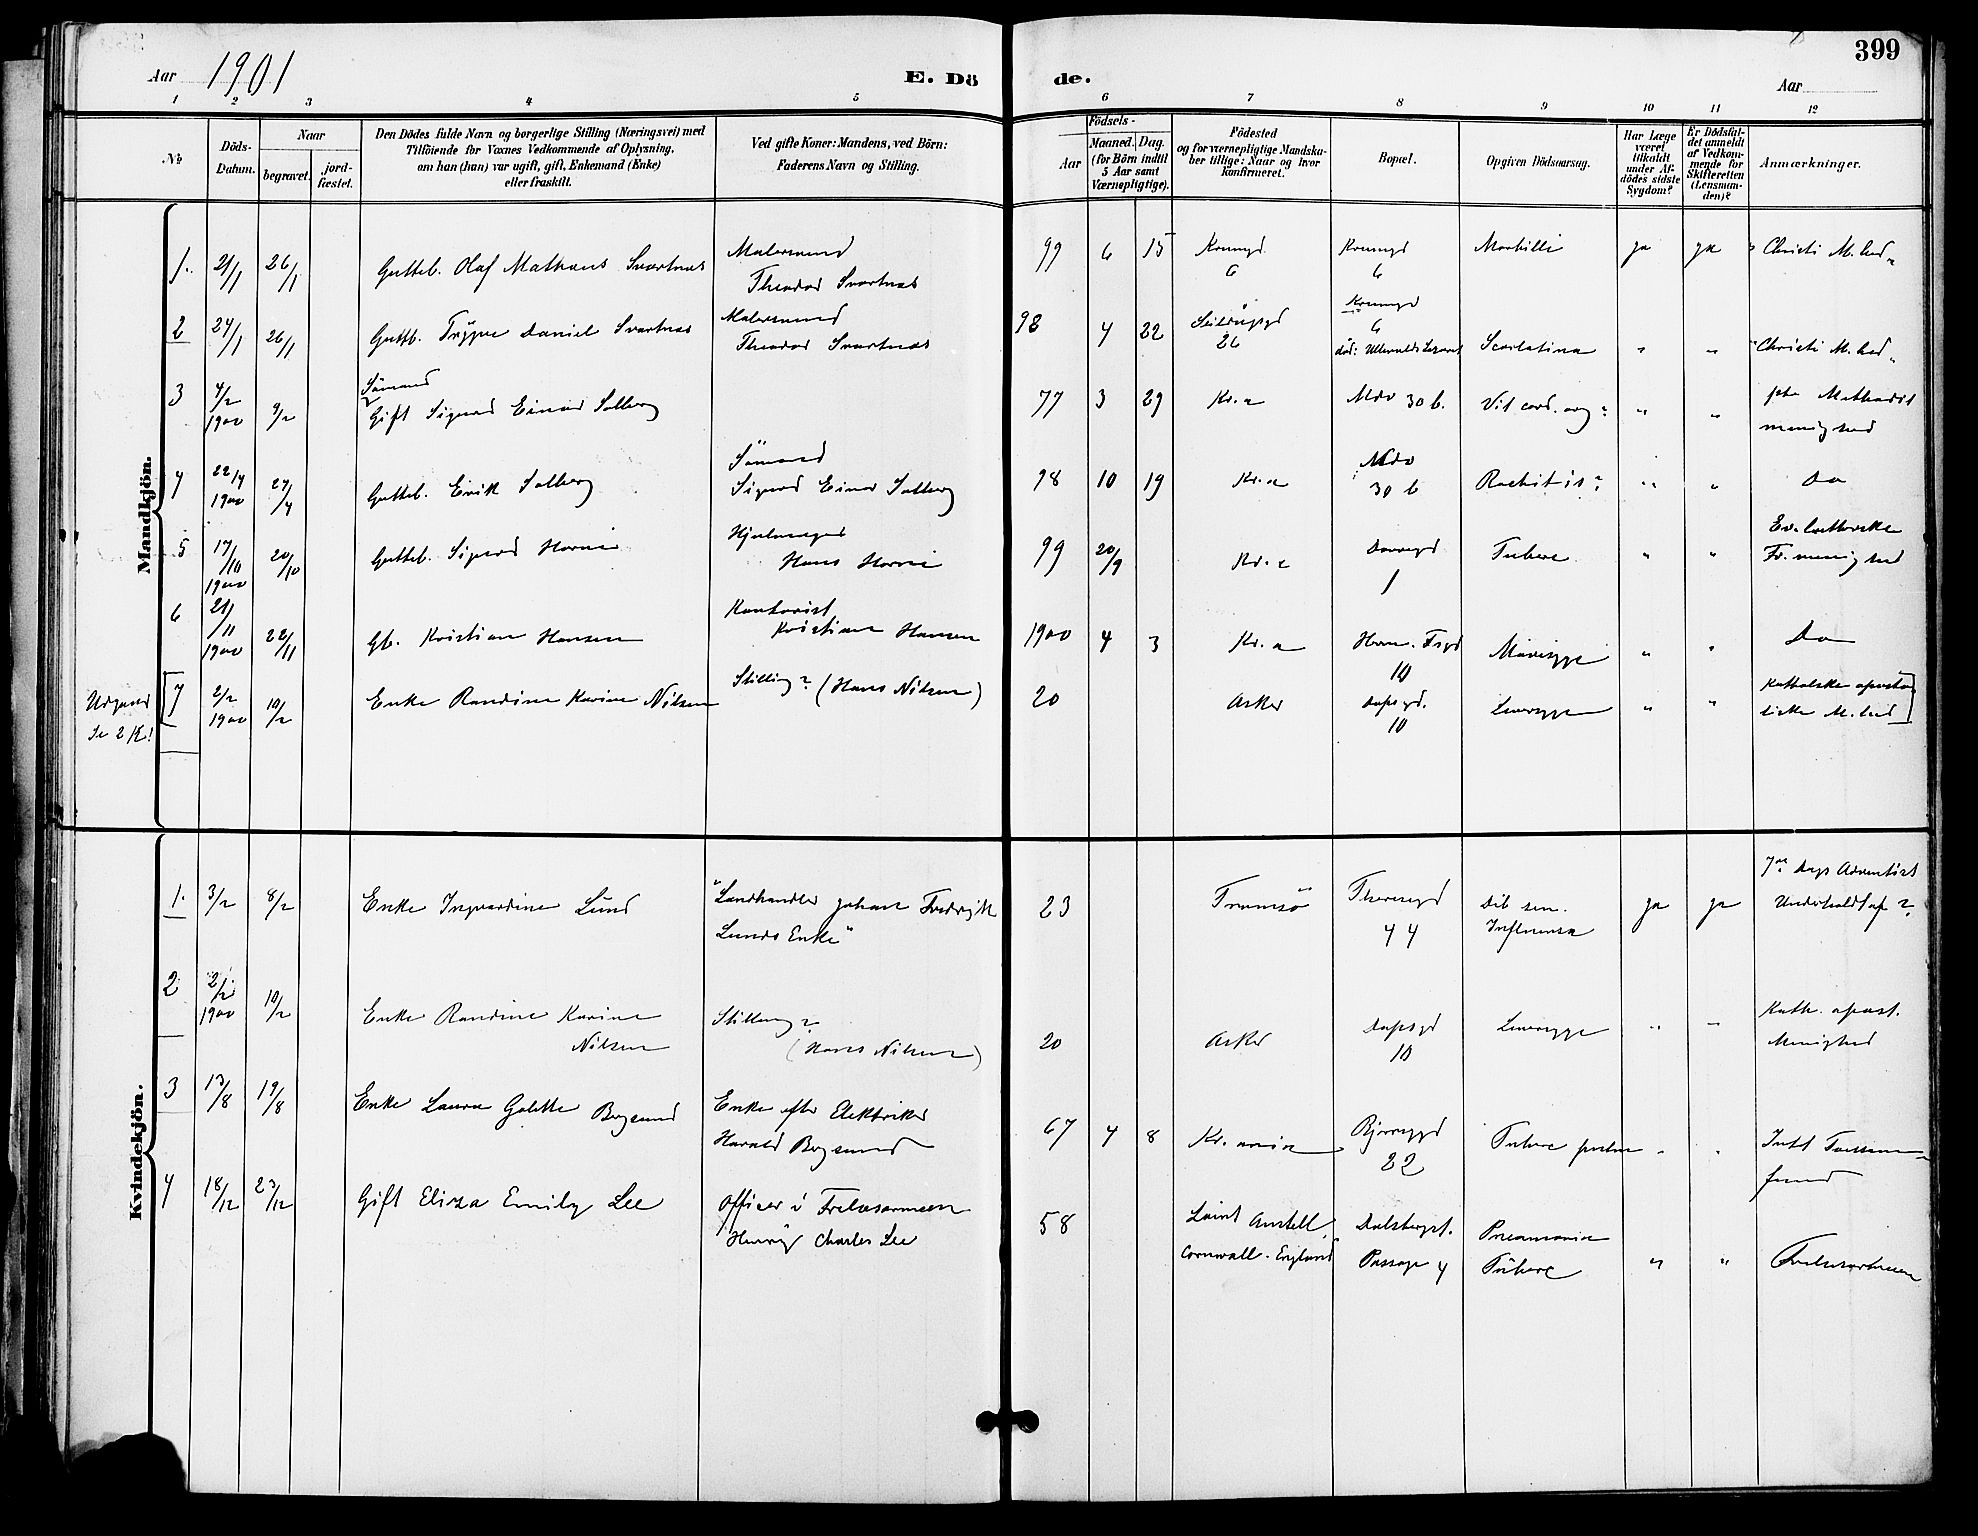 399
Aar 1901
E. Dö
de.
Aar
1 2 3 4 5 6 7 8 9 10 11 12
No
Döds-
Datum.
Naar
begravet.
jord-
fæstet.
Den Dödes fulde Navn og borgerlige Stilling (Næringsvei) med
Tilföiende for Voxnes Vedkommende af Oplysning,
om han (hun) var ugift, gift, Enkemand (Enke)
eller fraskilt.
Ved gifte Koner: Mandens, ved Börn:
Faderens Navn og Stilling.
Födsels-
Aar
Maaned.
Dag.
(for Börn indtil
5 Aar samt
Værnepligtige).
Födested
og for værnepligtige Mandska-
ber tillige: Naar og hvor
konfirmeret.
Bopæl.
Opgiven Dödsaarsag.
Har Læge
været
tilkaldt
under Af-
dödes sidste
Sygdom?
Er Dödsfal-
det anmeldt
af Vedkom-
mende for
Skifteretten
(Lensman-
den)?
Anmærkninger.
Mandkjön.
1. 21/1 26/1 Gutteb. Olaf Mathæus Svartnæs
Malersvend
Theodor Svartnæs
99 6 15
6
6
ja ja
Christi M.hed
2 24/1 26/1 Guttb. Trygve Daniel Svartnæs
Malersvend
Theodor Svartnæs
98 4 22
26
6
død: Ullevolds Lazaret
Scarlatina " " Christi M.hed
3 4/2
1900
9/2
Sömand
Gift Sigurd Einar Solberg
77 3 29 Kr.a 30 b. Vit. cord. org? " "
Methodist
menighed
4 22/4
1900
27/4
Gutteb. Erik Solberg
Sömand
Sigurd Einar Solberg
98 10 19 Kr.a
30 b
Rachitis? " " Do
5 17/10
1900
20/10
Gutteb. Sigurd Hornie
Hans Hornie
99 20/9 Kr.a
1
Tuberc. " "
Ev. lutherske
Fr. menighed
6 21/11
1900
22/11
Gb. Kristian Hansen
Kontorist
Kristian Hansen
1900 4 3 Kr.a
10
Mavesyge " " Do
Udgaar
Se 2 K!
7 2/2
1900
10/2
Enke Randine Karine Nilsen
Stilling? (Hans Nilsen)
20 Asker
Dopsgd.
10
Leversyge " "
Katholske aposto
liske M.hed
Kvindekjön.
1. 3/2 8/2 Enke Ingvardine Lund
"Landhandler Johan Fredrik
Lunds Enke"
23 Tromsö
Theresegd
44
Deb. sen.
Influenza
ja ja
7de Dags Adventist
2 2/2
1900
10/2
Enke Randine Karine
Nilsen
Stilling?
(Hans Nilsen)
20 Asker
Dopsgd
10
Leversyge " "
Kath. apost.
Menighed
3 13/8 19/8 Enke Laura Golette Bergsund
Enke efter Elektriker
Harald Bergsund
67 4 8 Kr.ania
22
Tuberc pulm " "
4 18/12 23/12 Gift Eliza Emily Lee
Officer i Frelsesarmeen
Henry Charles Lee
58
Saint Austell,
Cornwall. England
Dalsbergst.
Passage 4
Pneumonia
Tuberc
" " Frelsesarmeen